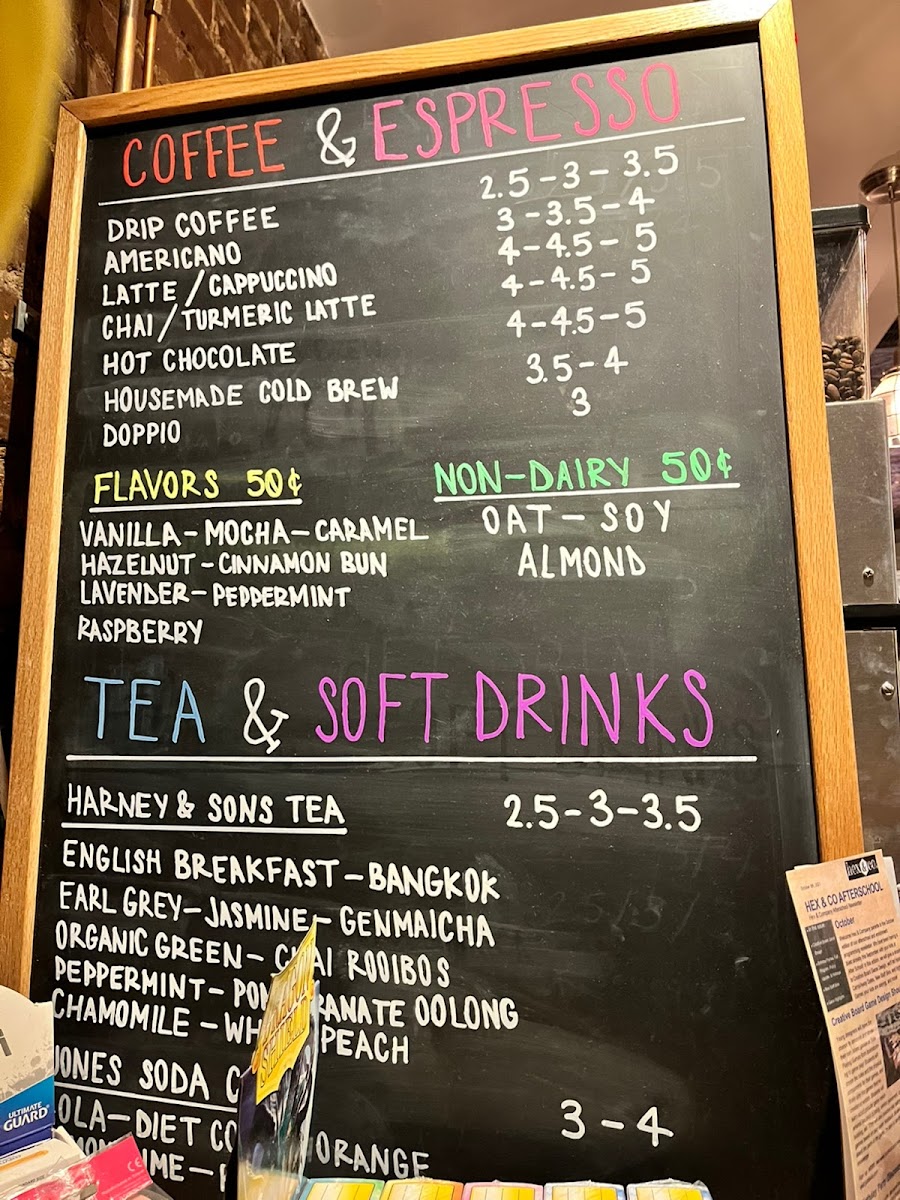 COFFEE & ESPRESSO
DRIP COFFEE 2.5-3-3.5
AMERICANO 3-3.5-4
LATTE/CAPPUCCINO 4-4.5-5
CHAI/TURMERIC LATTE 4-4.5-5
HOT CHOCOLATE 4-4.5-5
HOUSEMADE COLD BREW 3.5-4
DOPPIO 3
FLAVORS 50¢
VANILLA-MOCHA-CARAMEL
HAZELNUT-CINNAMON BUN
LAVENDER-PEPPERMINT
RASPBERRY
NON-DAIRY 50¢
OAT-SOY
ALMOND
TEA & SOFT DRINKS
HARNEY & SONS TEA 2.5-3-3.5
ENGLISH BREAKFAST-BANGKOK
EARL GREY-JASMINE-GENMAICHA
ORGANIC GREEN- ROOIBOS
PEPPERMINT- OOLONG
CHAMOMILE- PEACH
JONES SODA
3-4
DIET ORANGE
ULTIMATE
GUARD
hex&co
HEX & CO AFTERSCHOOL
Hex & Company Afterschool Newsletter
October
Creative Board Game Design